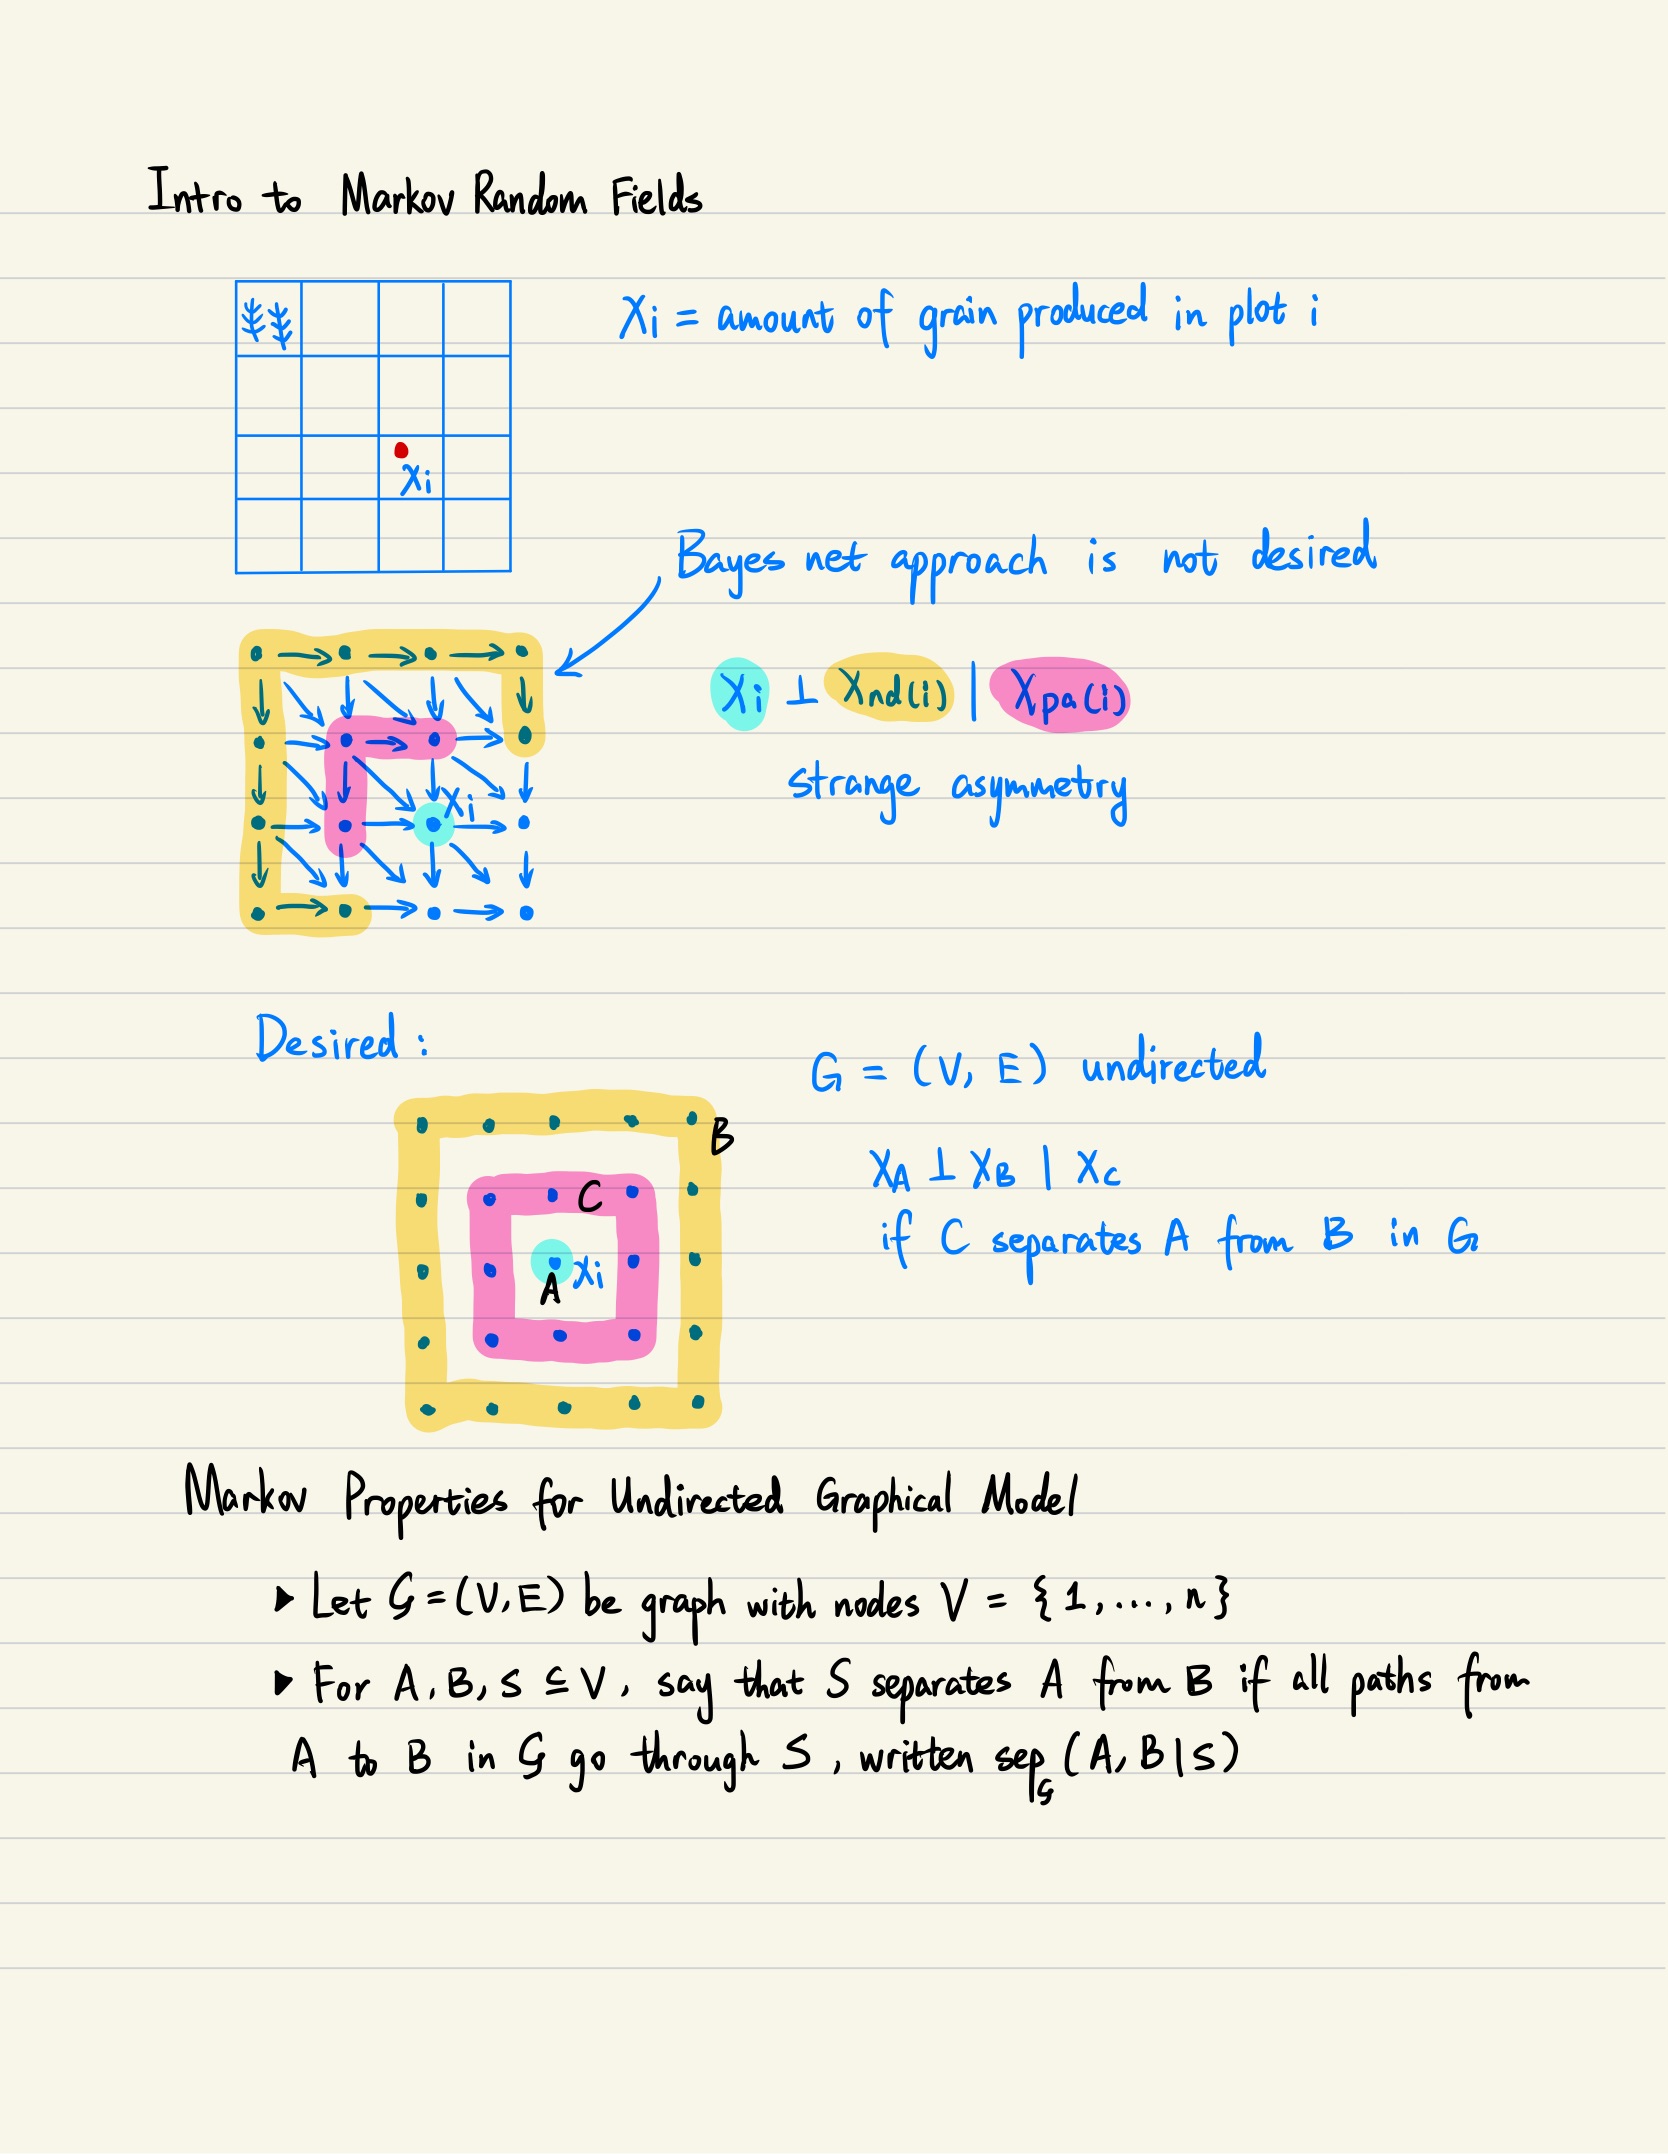 Intro to Markov Random Fields
Xi = amount of grain produced in plot i
Xi
Bayes net approach is not desired
Xi ⊥ Xnd(i) | Xpa(i)
strange asymmetry
Xi
Desired :
G = (V, E) undirected
B
XA ⊥ XB | XC
C
if C separates A from B in G
Xi
A
Markov Properties for Undirected Graphical Model
▸ Let G = (V, E) be graph with nodes V = {1, ..., n}
▸ For A, B, S ⊆ V, say that S separates A from B if all paths from
A to B in G go through S, written sep_G (A, B | S)